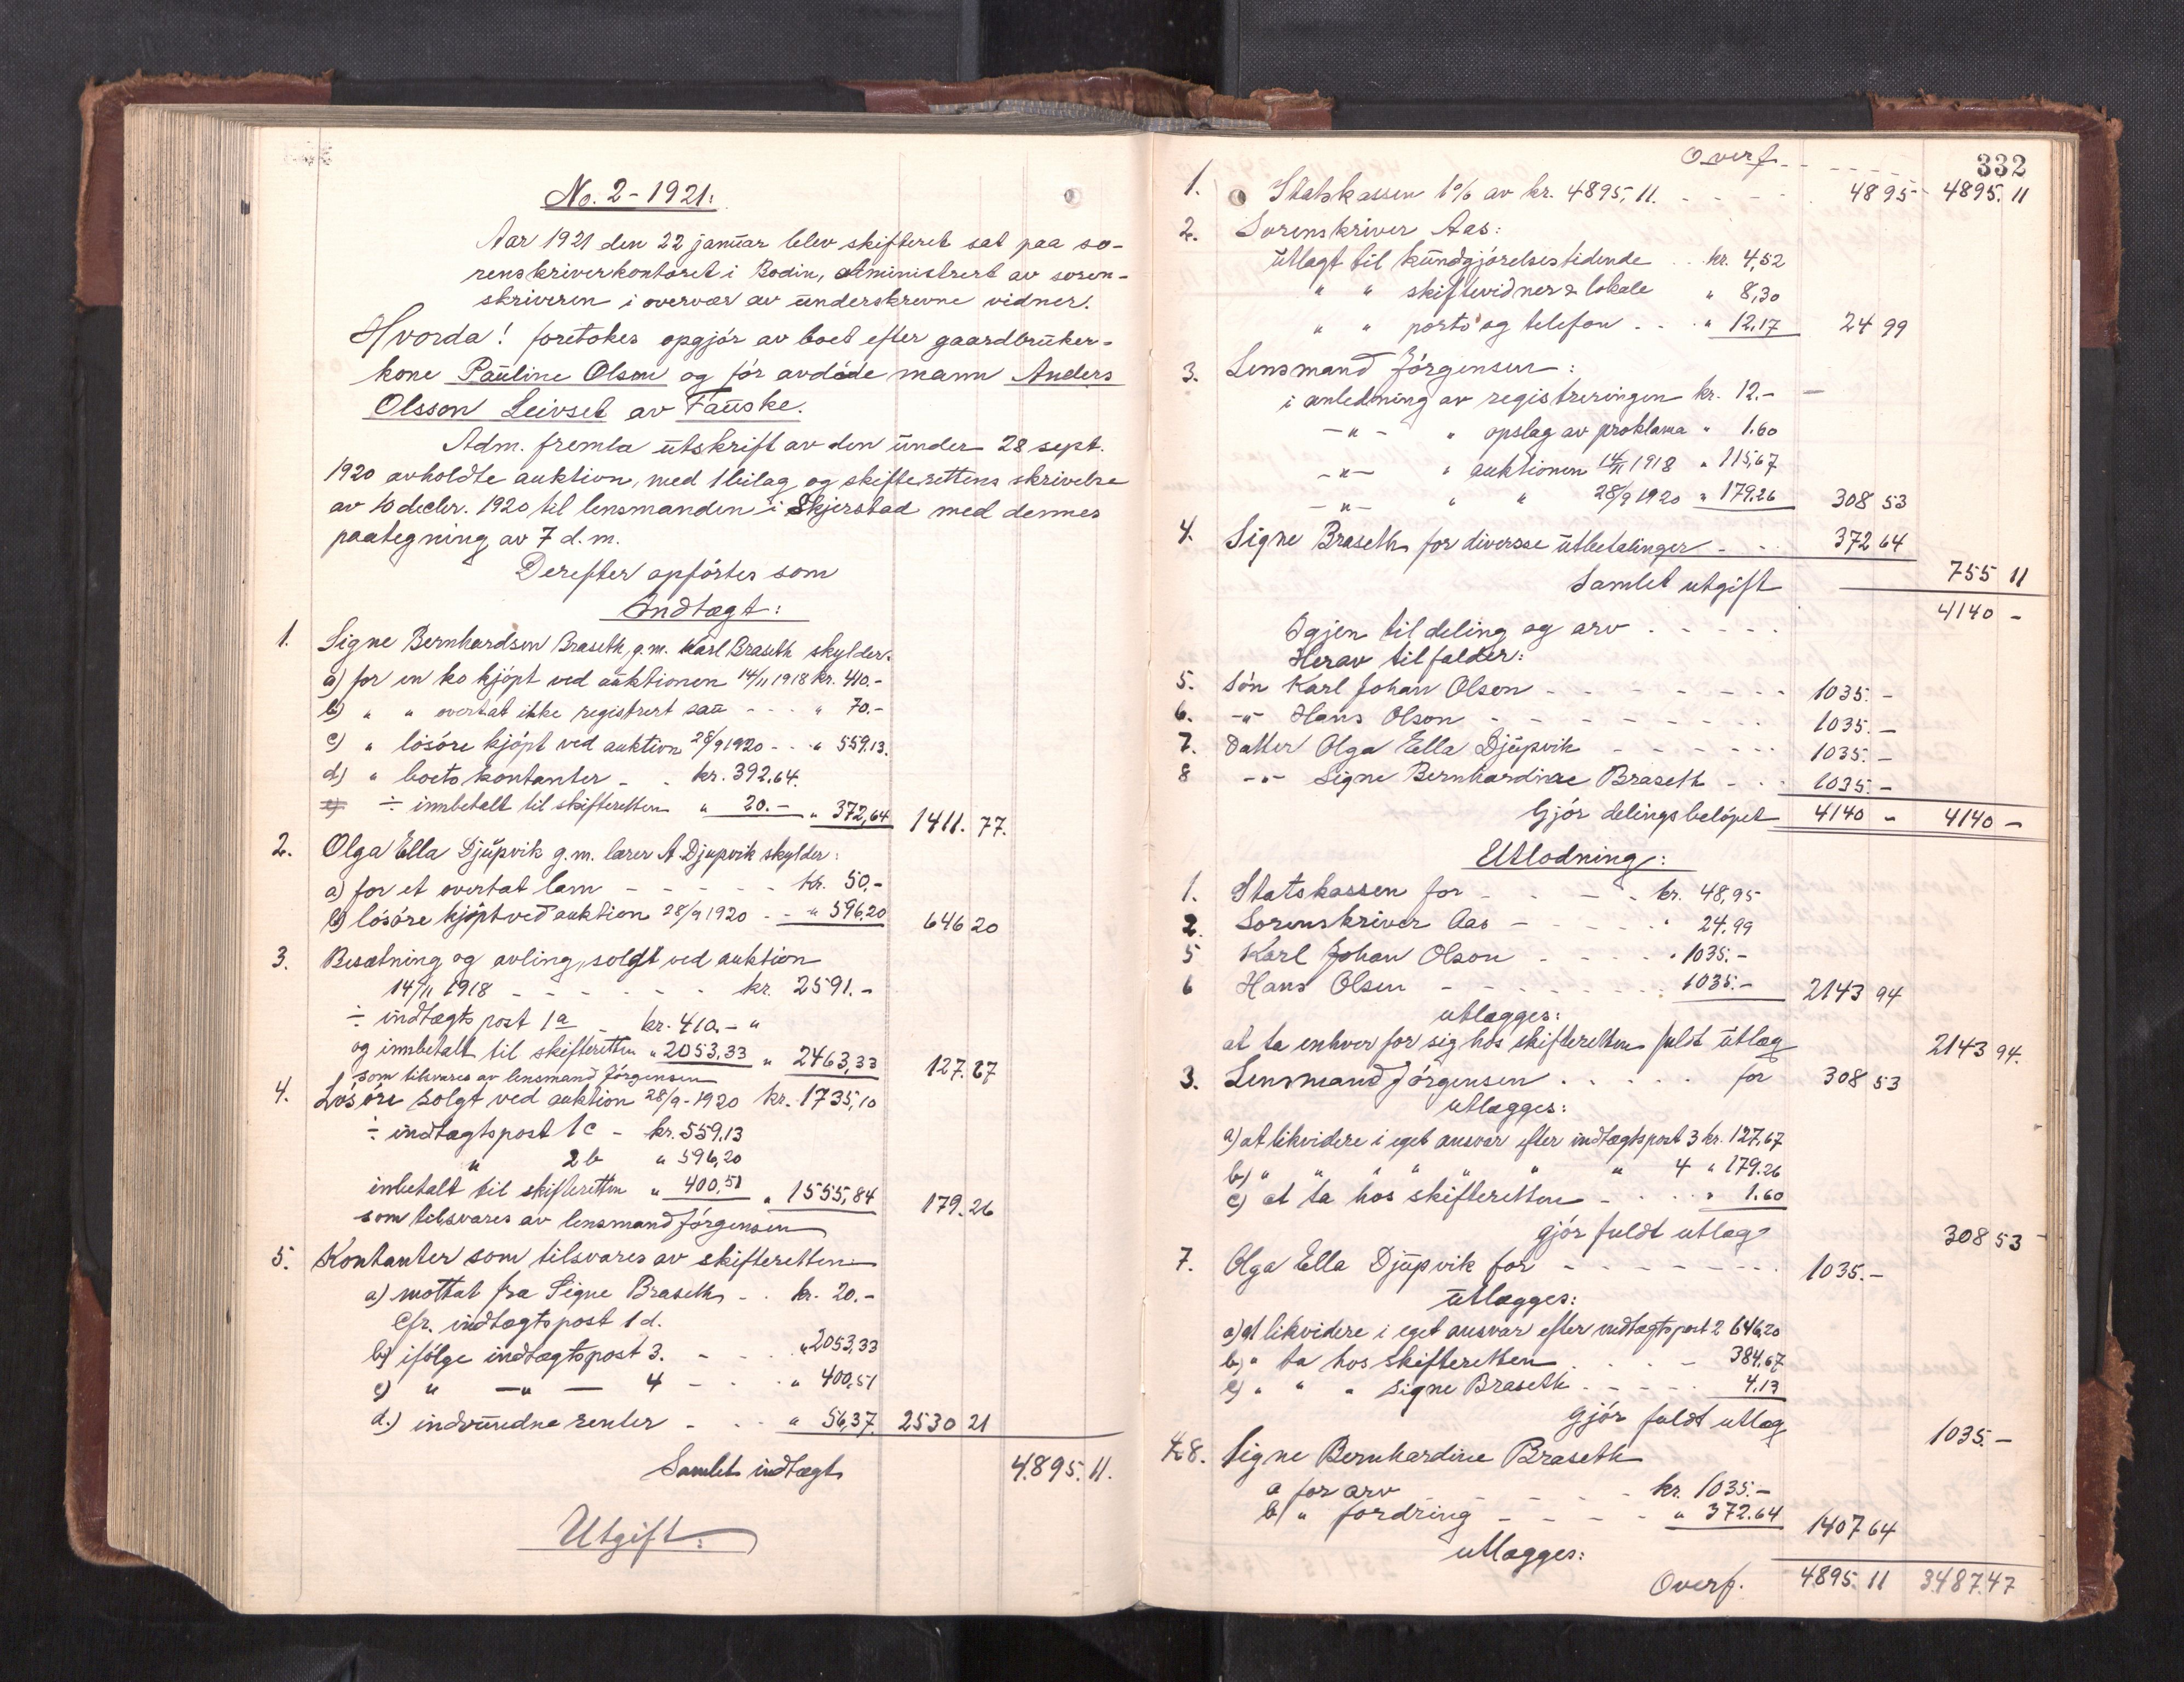 No. 2 - 1921:
Aar 1921 den 22 januar blev skifteret sat paa so-
renskriverkontoret i Bodin, administrert av soren-
skriveren i overvær av underskrevne vidner.
Hvorda! foretokes opgjör av boet efter gaardbruker-
kone Pauline Olsen og för avdöde mann Anders
Olsson Leivset av Fauske.
Adm. fremla utskrift av den under 28 sept.
1920 avholdte auktion, med 1 bilag og skifterettens skrivelse
av 10 decbr. 1920 til lensmanden i Skjerstad med dennes
paategning av 7 d.m.
Derefter opförtes som
Indtægt:
1. Signe Bernhardsen Braseth, g.m. Karl Braseth skylder:
a) for en ko kjöpt ved auktionen 14/11 1918 kr. 410.-
b) " " overtat ikke registrert sau - - - " 70.-
c) " lösöre kjöpt ved auktion 28/9 1920 - - " 559.13.
d) " boets kontanter - . kr. 392.64.
e) ÷ innbetalt til skifteretten " 20.- " 372,64 1411. 77.
2. Olga Ella Djupvik g.m. lærer A Djupvik skylder:
a) for et overtat lam - - - - - kr. 50.-
b) lösöre kjöpt ved auktion 28/9 1920 - - " 596.20 646 20
3. Besætning og avling, solgt ved auktion
14/11 1918 - - - - - - kr. 2591.-
÷ indtægtspost 1a - kr. 410.- "
og innbetalt til skifteretten " 2053,33 " 2463,33 127.67
som tilsvares av lensmand Jörgensen
4. Lösöre solgt ved auktion 28/9-1920 kr. 1735,10
÷ indtægtspost 1c - kr. 559,13
" 2b " 596,20
innbetalt til skifteretten " 400,51 " 1555,84 179.26
som tilsvares av lensmand Jörgensen
5. Kontanter som tilsvares av skifteretten
a) mottat fra Signe Braseth - . kr. 20.-
Cfr. indtægtspost 1 d.
b) ifölge indtægtspost 3. - - . " 2053,33
c) " - " - 4 - - . " 400,51
d.) indvundne renter - . - . " 56,37. 2530 21
Samlet indtægt 4895. 11.
Utgift:
332
Overf. - - - - - - - 4895. 11
1. Statskassen 1% av kr. 4895,11. - - - - . 48 95
2. Sorenskriver Aas:
Utlagt til kundgjörelsestidende . . kr. 4,52
" " skiftevidner & lokale " 8,30
" " porto og telefon . - . " 12,17 24 99
3. Lensmand Jörgensen:
i anledning av registreringen kr. 12.- -
- " - " opslag av proklama " 1.60
- " - " auktionen 14/11 1918 " 115,67
- " - " " 28/9 1920 " 179.26 308 53
4. Signe Braseth for diverse utbetalinger - - . 372 64
Samlet utgift 755 11
Igjen til deling og arv . - - - - . 4140 -
Herav tilfalder:
5. Sön Karl Johan Olsen - - - - - - - 1035.-
6. - " - Hans Olson - - - - - - - - 1035.-
7. Datter Olga Ella Djupvik - - - - - - 1035.-
8 - " - Signe Bernhardine Braseth - - . 1035.-
Gjör delingsbelöpet 4140 - 4140 -
Utlodning:
1. Statskassen for - . - . - . kr. 48,95
2. Sorenskriver Aas - - - - . " 24.99
5 Karl Johan Olson - - - - . " 1035.-
6 Hans Olsen - - - - - - . 1035.- 2143 94
utlægges:
at ta enhver for sig hos skifteretten fuldt utlæg 2143 94.
3. Lensmand Jörgensen . . . . . for 308 53
utlægges:
a) at likvidere i eget ansvar efter indtægtspost 3 kr. 127.67
b) " " " " " " 4 " 179.26
c) at ta hos skifteretten - . . . " 1.60
gjör fuldt utlæg 308 53
7. Olga Ella Djupvik for - - - - - - - . 1035.-
utlægges:
a) at likvidere i eget ansvar efter indtægtspost 2 646,20
b) " ta hos skifteretten . - . - 384.67
c) " " " Signe Braseth . - - - - 4.13
gjör fuldt utlæg 1035.-
4 & 8. Signe Bernhardine Braseth
a for arv - - - - - kr. 1035.-
b) " fordring - - - - " 372.64 1407 64
utlægges:
Overf. 4895. 11 3487.47